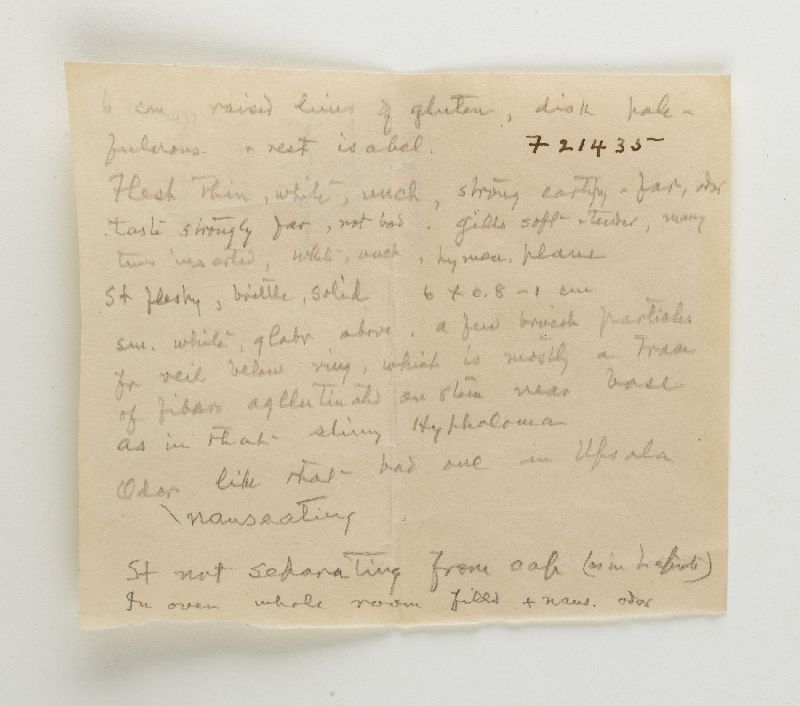 6 cm, raised lines of gluten, disk pale-
fulvous & rest isabel. 721435
Flesh thin, white, unch, strong earthy-far, odor
taste strongly far, not bad. gills soft-tender, many
times inserted, white, unch, hymen. plane
St fleshy, brittle, solid 6 x 0.8-1 cm
sm. white, glabr above, a few brnish particles
fr veil below ring, which is mostly a trace
of fibers agglutinated on stem near base
as in that slimy Hypholoma
Odor like that bad one in Upsala
\nauseating
St not separating from cap (as in Lepiota)
In oven whole room filled + naus. odor